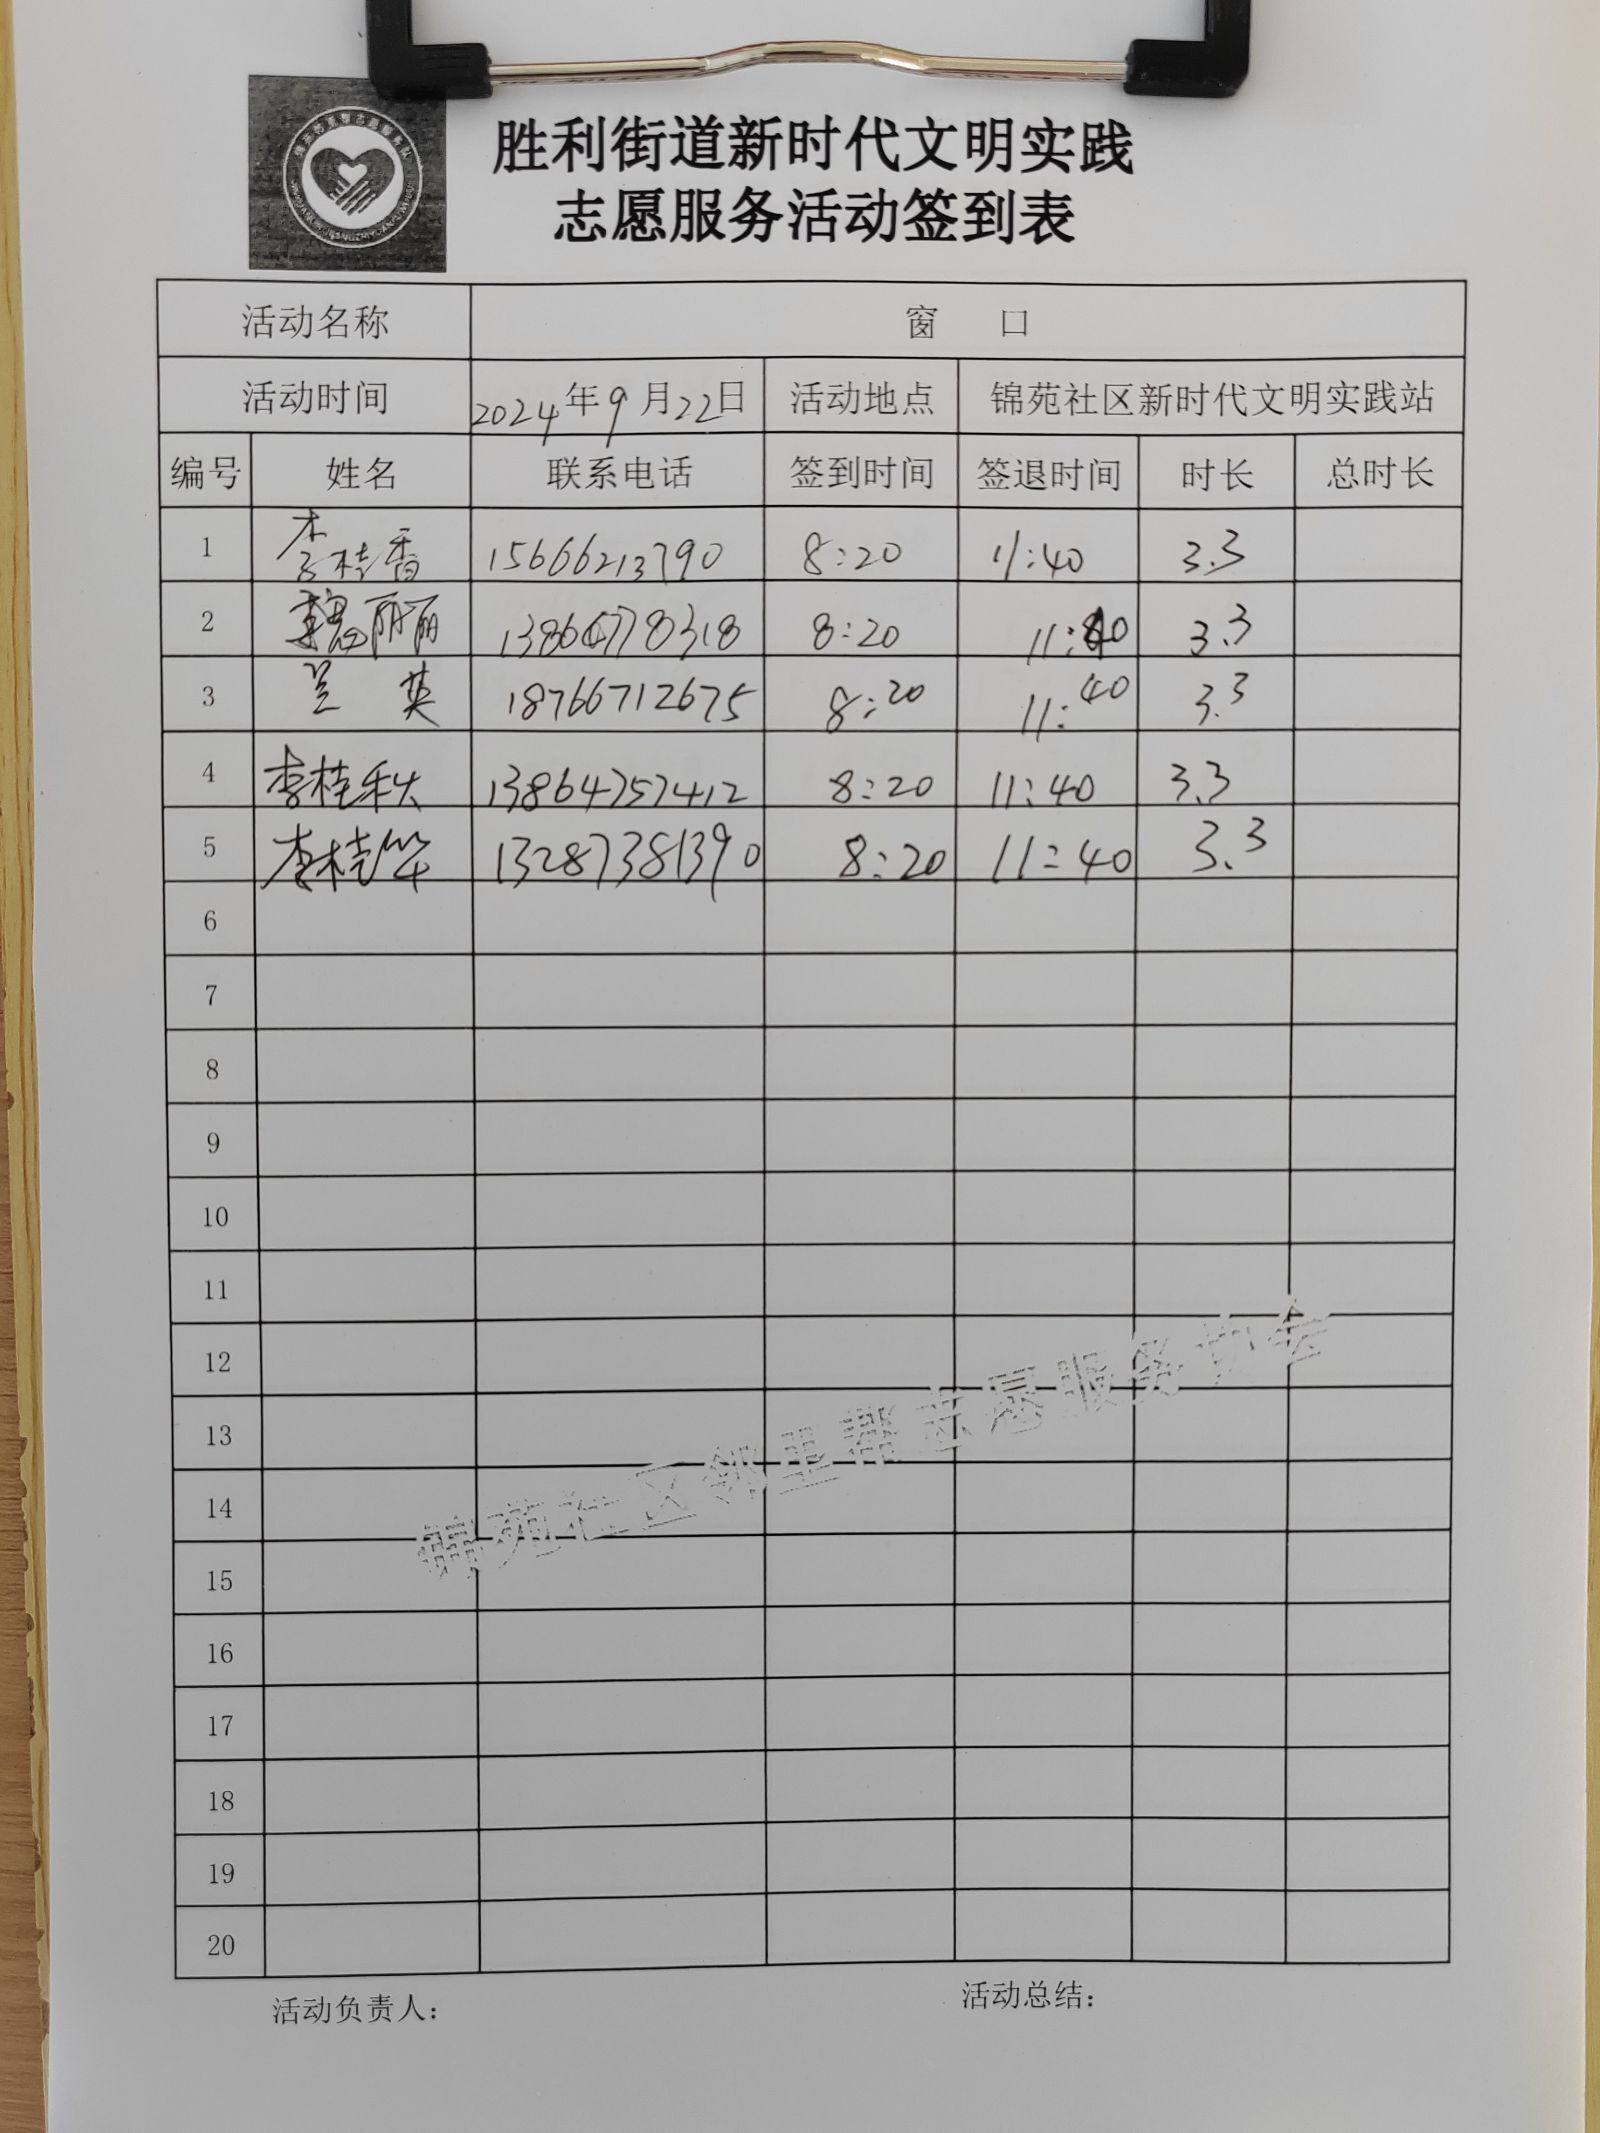 胜利街道新时代文明实践
志愿服务活动签到表
活动名称 窗 口
活动时间 2024年9月22日 活动地点 锦苑社区新时代文明实践站
编号 姓名 联系电话 签到时间 签退时间 时长 总时长
1 李桂香 15666213790 8:20 11:40 3.3
2 魏丽丽 8:20 11:40 3.3
3 兰 英 18766712675 8:20 11:40 3.3
4 李桂秋 13864757412 8:20 11:40 3.3
5 李桂华 13287381390 8:20 11:40 3.3
6
7
8
9
10
11
12
13
14
15
16
17
18
19
20
锦苑社区邻里帮志愿服务协会
活动负责人： 活动总结：